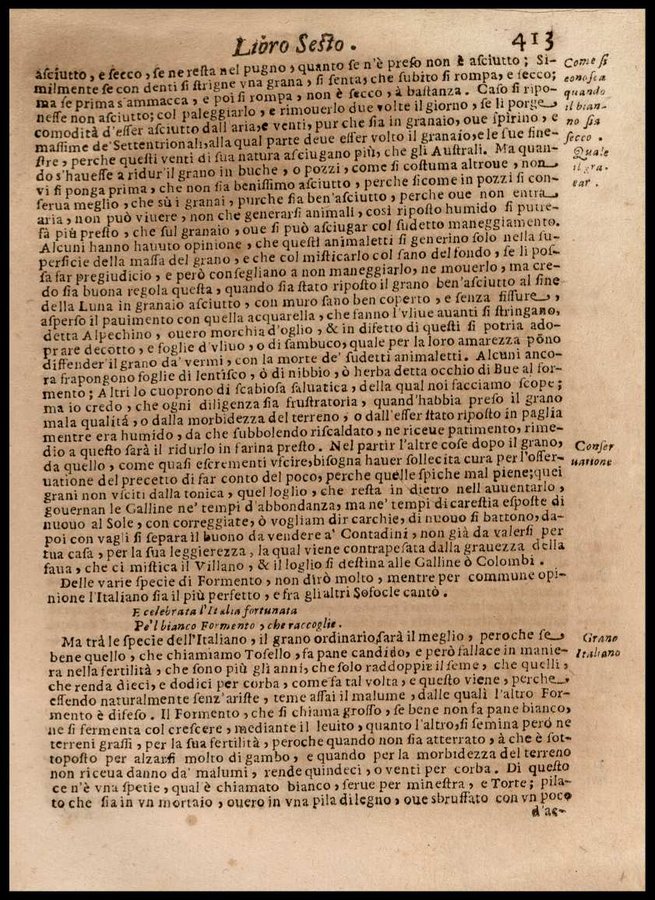 Libro Sesto. 413
asciutto, e secco, se ne resta nel pugno, quanto se n'è preso non è asciutto; Si-
milmente se con denti si strigne vna grana, si senta, che subito si rompa, e secco;
ma se prima s'ammacca, e poi si rompa, non è secco, à bastanza. Caso si ripo-
nesse non asciutto; col paleggiarlo, e rimouerlo due volte il giorno, se li porge
comodità d'esser asciutto dall'aria, e venti, pur che sia in granaio, oue spirino, e
massime de'Settentrionali, alla qual parte deue esser volto il granaio, e le sue fine-
stre, perche questi venti di sua natura asciugano più, che gli Australi. Ma quan-
do s'hauesse a ridur'il grano in buche, o pozzi, come si costuma altroue, non
vi si ponga prima, che non sia benissimo asciutto, perche sicome in pozzi si con-
serua meglio, che sù i granai, purche sia ben'asciutto, perche oue non entra
aria, non può viuere, non che generarsi animali, così riposto humido si putre-
fà più presto, che sul granaio, oue si può asciugar col sudetto maneggiamento.
Alcuni hanno hauuto opinione, che questi animaletti si generino solo nella su-
perficie della massa del grano, e che col misticarlo col sano del fondo, se li pos-
sa far pregiudicio, e però consegliano a non maneggiarlo, ne mouerlo, ma cre-
do sia buona regola questa, quando sia stato riposto il grano ben'asciutto al fine
della Luna in granaio asciutto, con muro sano ben coperto, e senza fissure,
asperso il pauimento con quella acquarella, che fanno l'vliue auanti si stringano,
detta Alpechino, ouero morchia d'oglio, & in difetto di questi si potria ado-
prare decotto, e foglie d'vliuo, o di sambuco, quale per loro amarezza pōno
diffender'il grano da' vermi, con la morte de' sudetti animaletti. Alcuni anco-
ra frapongono foglie di lentisco, ò di nibbio, ò herba detta occhio di Bue al for-
mento; Altri lo cuoprono di scabiosa saluatica, della qual noi facciamo scope;
ma io credo, che ogni diligenza sia frustratoria, quand'habbia preso il grano
mala qualità, o dalla morbidezza del terreno, o dall'esser stato riposto in paglia
mentre era humido, da che subbolendo riscaldato, ne riceue patimento, rime-
dio a questo sarà il ridurlo in farina presto. Nel partir l'altre cose dopo il grano,
da quello, come quasi escrementi vscire, bisogna hauer sollecita cura per l'osser-
uatione del precetto di far conto del poco, perche quelle spiche mal piene; quei
grani non vsciti dalla tonica, quel loglio, che resta in dietro nell'auuentarlo,
gouernan le Galline ne' tempi d'abbondanza, ma ne' tempi di carestia esposte di
nuouo al Sole, con correggiate, ò vogliam dir carchie, di nuouo si battono, da-
poi con vagli si separa il buono da vendere a' Contadini, non già da valersi per
tua casa, per la sua leggierezza, la qual viene contrapesata dalla grauezza della
faua, che ci mistica il Villano, & il loglio si destina alle Galline ò Colombi.
Delle varie specie di Formento, non dirò molto, mentre per commune opi-
nione l'Italiano sia il più perfetto, e fra gli altri Sofocle cantò.
E celebrata l'Italia fortunata
Pe'l bianco Formento, che raccoglie.
Ma trà le specie dell'Italiano, il grano ordinario, sarà il meglio, peroche se
bene quello, che chiamiamo Tosello, fa pane candido, e però fallace in manie-
ra nella fertilità, che sono più gli anni, che solo raddoppie il seme, che quelli,
che renda dieci, e dodici per corba, come fa tal volta, e questo viene, perche
essendo naturalmente senz'ariste, teme assai il malume, dalle quali l'altro For-
mento è difeso. Il Formento, che si chiama grosso, se bene non fa pane bianco,
ne si fermenta col crescere, mediante il leuito, quanto l'altro, si semina però ne
terreni grassi, per la sua fertilità, peroche quando non sia atterrato, à che è sot-
toposto per alzarsi molto di gambo, e quando per la morbidezza del terreno
non riceua danno da' malumi, rende quindeci, o venti per corba. Di questo
ce n'è vna spetie, qual è chiamato bianco, serue per minestra, e Torte; pila-
to che sia in vn mortaio, ouero in vna pila di legno, oue sbruffato con vn poco
d'ac-
Come si
conosca
quando
il bian-
no sia
secco.
Quale
il gra-
ear.
Conser
uatione
Grano
Italiano